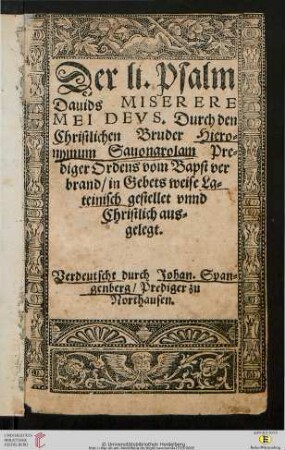 Der li. Psalm
Dauids MISERERE
MEI DEVS. Durch den
Christlichen Bruder Hiero-
nymum Sauonarolam Pre-
diger Ordens vom Bapst ver
brand / in Gebets weise La-
teinisch gestellet vnnd
Christlich aus-
gelegt.
Verdeutscht durch Johan. Span-
genberg / Prediger zu
Northausen.
UNIVERSITÄTS-
BIBLIOTHEK
HEIDELBERG
© Universitätsbibliothek Heidelberg